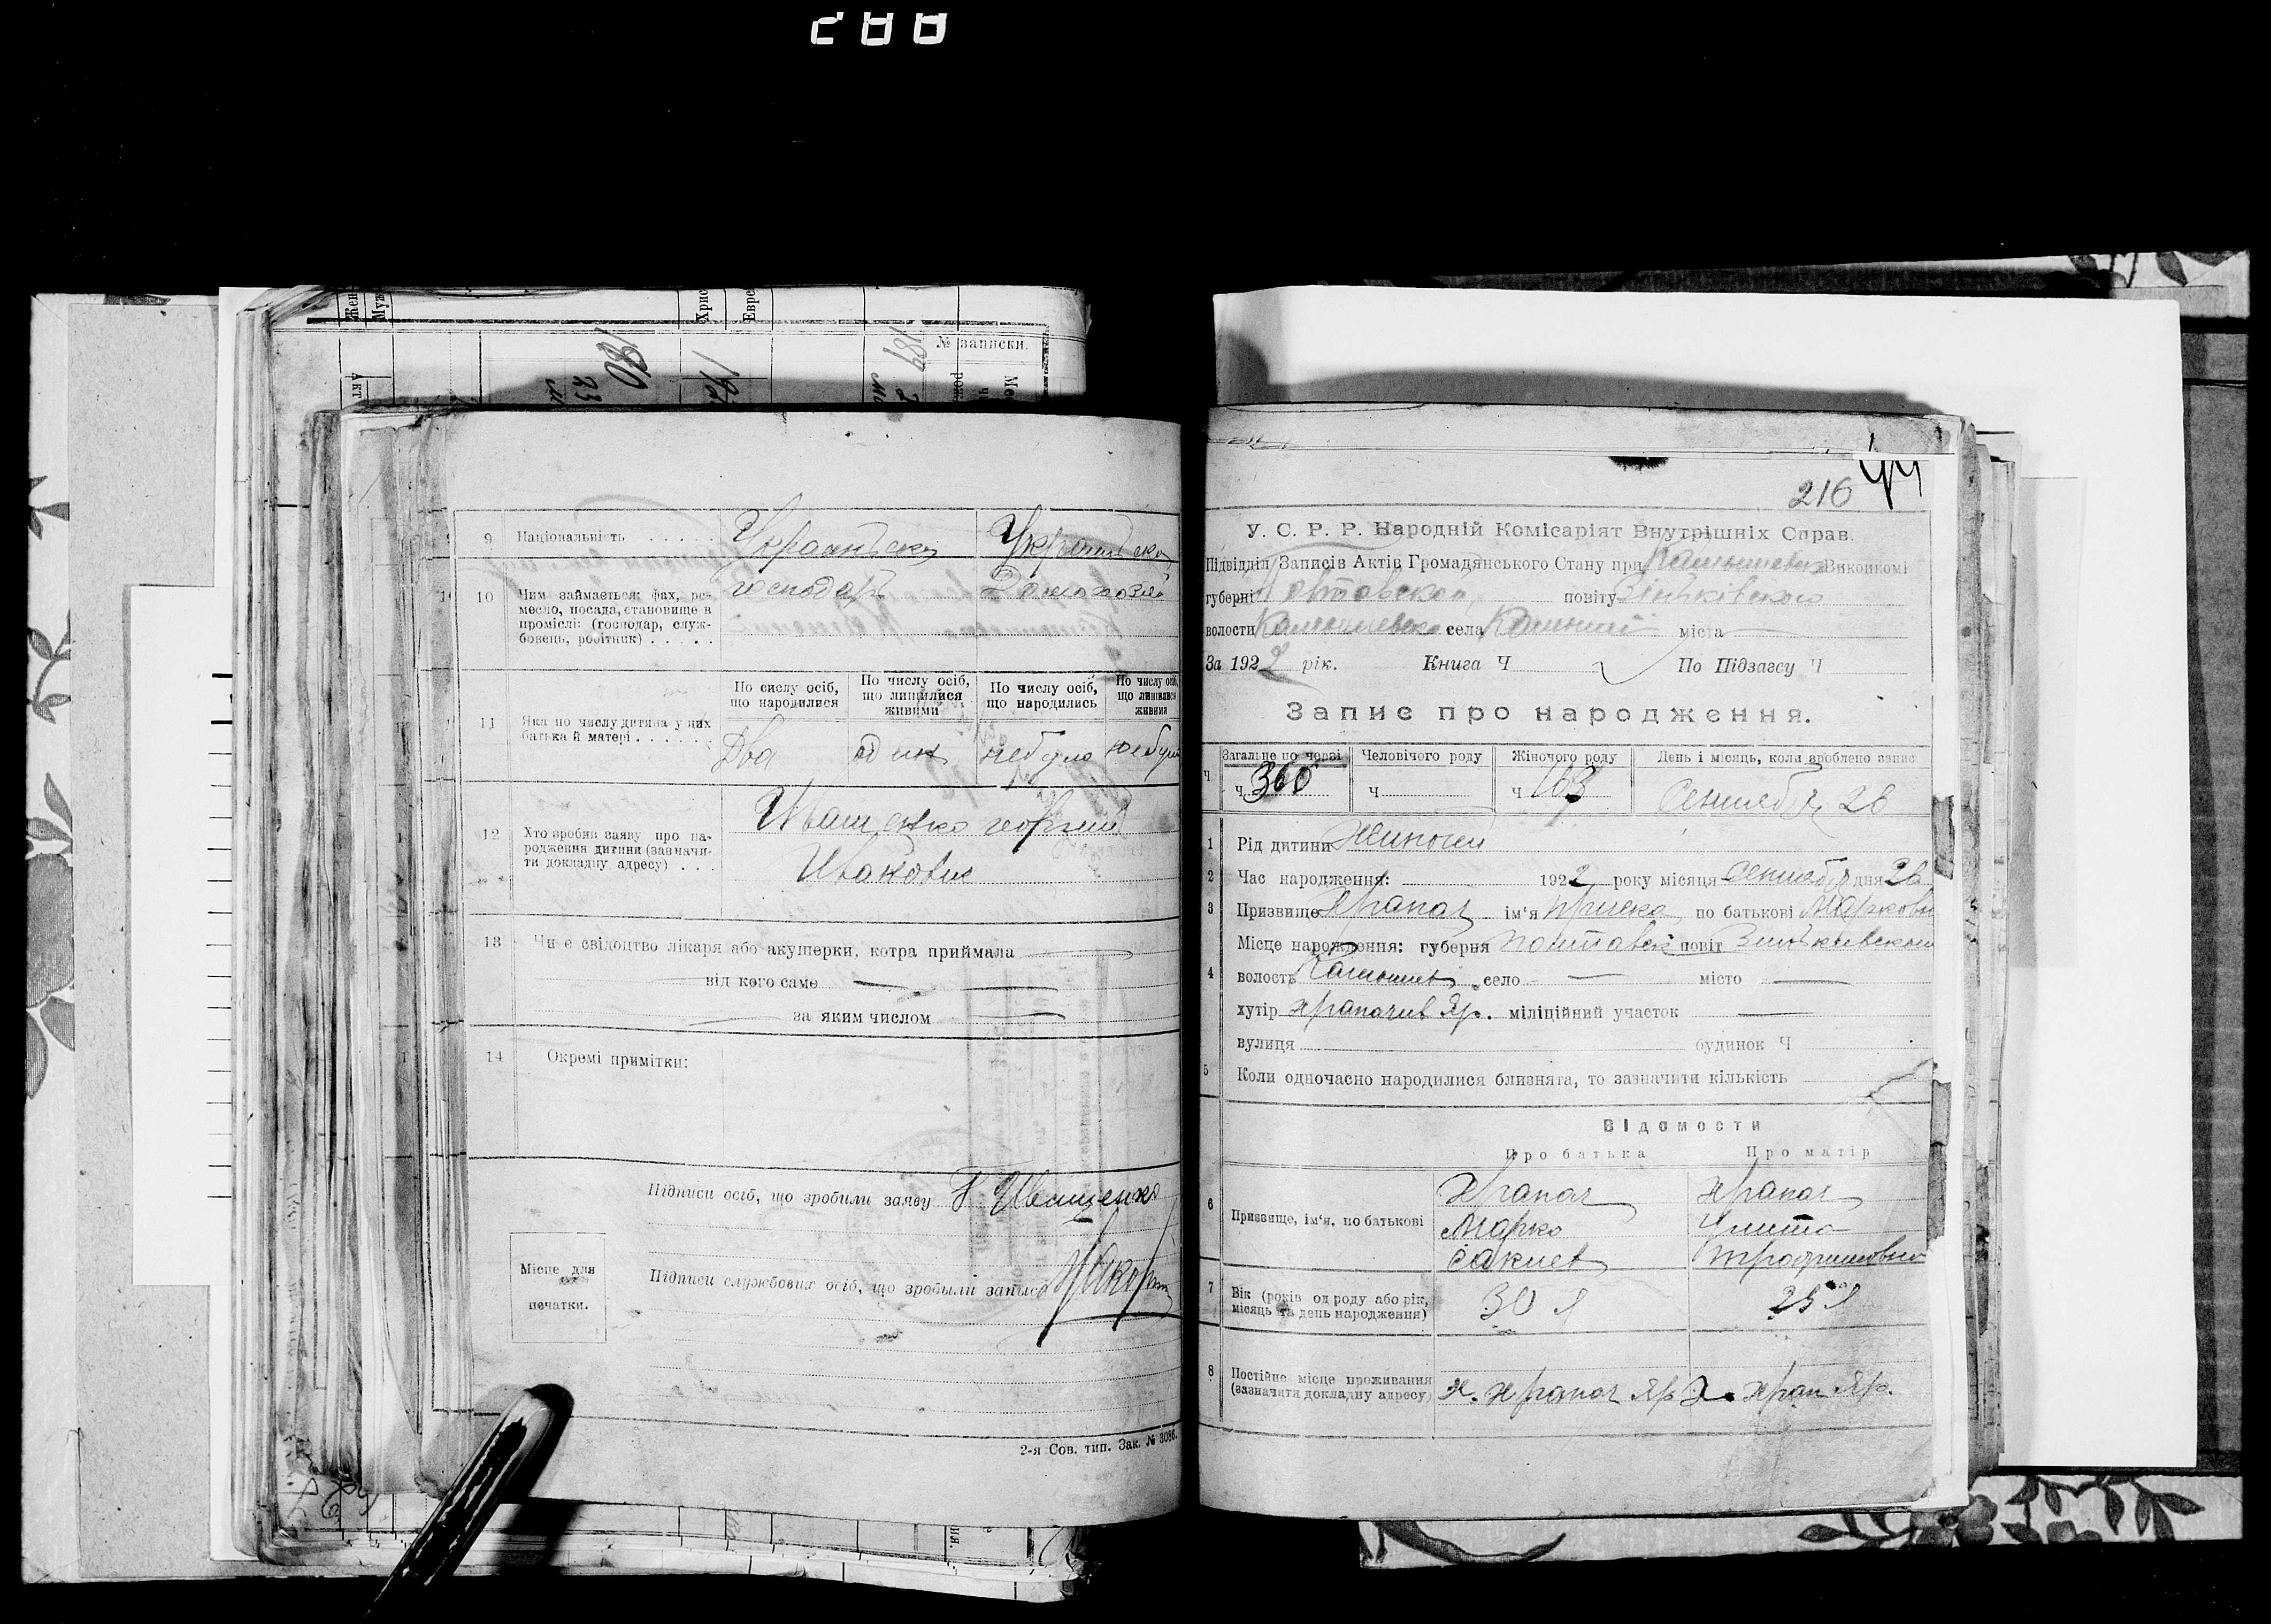 288
Жен
Муж
Хрис
Евре
№ записки.
189
180
23
9 Національність . . . . . Украинська Украинська
10 Чим займається: фах, ре-
месло, посада, становище в
проміслі: (господар, служ-
бовець, робітник) . . . . .
господарь
Домохозяй
По сислу осіб, що народилися
По числу осіб, що лишилися живими
По числу осіб, що народились
По числу осіб, що лишилися живими
11 Яка по числу дитина у цих
батька й матері . . . . . .
Два один небуло небуло
12 Хто зробив заяву про на-
родження дитини (зазначи-
ти докладну адресу) . . .
Иващенко Георгий
Иванович
13 Чи є свідоцтво лікаря або акушерки, котра приймала
від кого саме
за яким числом
14 Окремі примітки:
Підписи осіб, що зробили заяву Г Иващенко
Підписи службових осіб, що зробили запись
Місце для
печатки.
2-я Сов. тип. Зак. № 3086.
44
216
У. С. Р. Р. Народній Комісаріят Внутрішніх Справ.
Підвідділ Записів Актів Громадянського Стану при Виконкомі
губерні Полтавской повіту Зіньківського
волости села міста
За 1922 рік. Книга Ч По Підзагсу Ч
Запис про народження.
Загальне по черзі Человічого роду Жіночого роду День і місяць, коли зроблено запис
Ч Ч 360 Ч Ч 163 Сентября 26
1 Рід дитини Жиночи
2 Час народження: 1922 року місяця Сентября дня 26
3 Призвище Храпач ім'я Приска по батькові Маркови
Місце народження: губерня Полтавск повіт Зиньковского
4 волость Камышев село місто
хутір Храпачив Яр. міліційний участок
вулиця будинок Ч
5 Коли одночасно народилися близнята, то зазначити кількість
Відомости
Про батька Про матір
6 Призвище, ім'я, по батькові
Храпач Храпач
Марко Улита
Сакиев Трофимовна
7 Вік (років од роду або рік,
місяць та день народження)
30 л 25 л
8 Постійне місце проживання
(зазначити докладну адресу)
х. Храпач Яр х. Храп Яр.